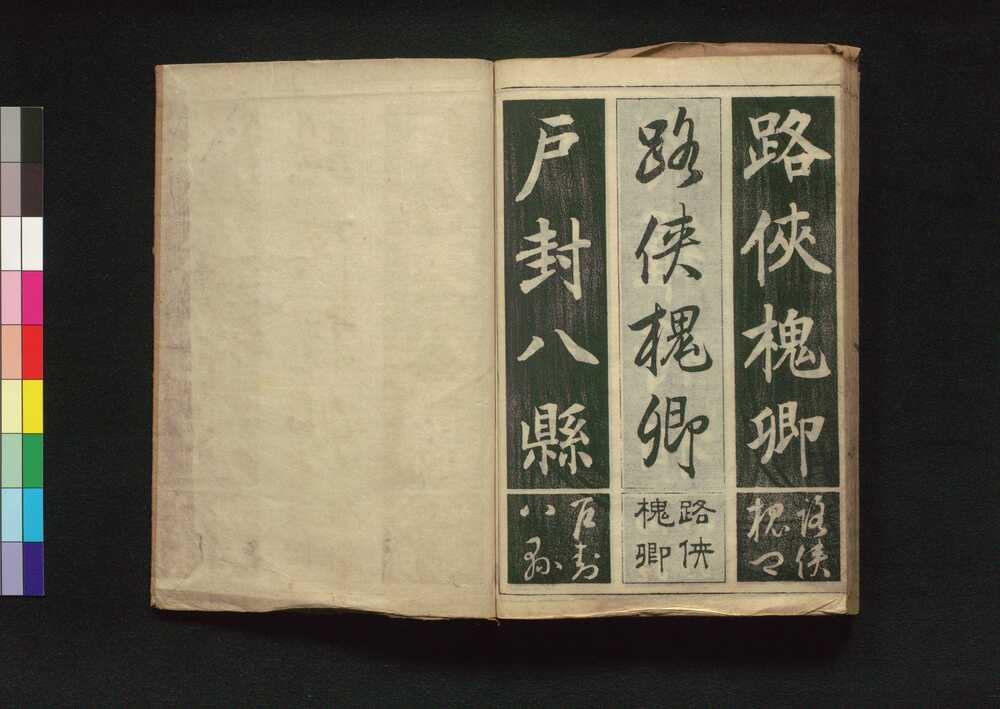 路俠槐卿
洛俠
槐卿
路侠槐卿
路侠
槐卿
戸封八縣
戸封
八縣